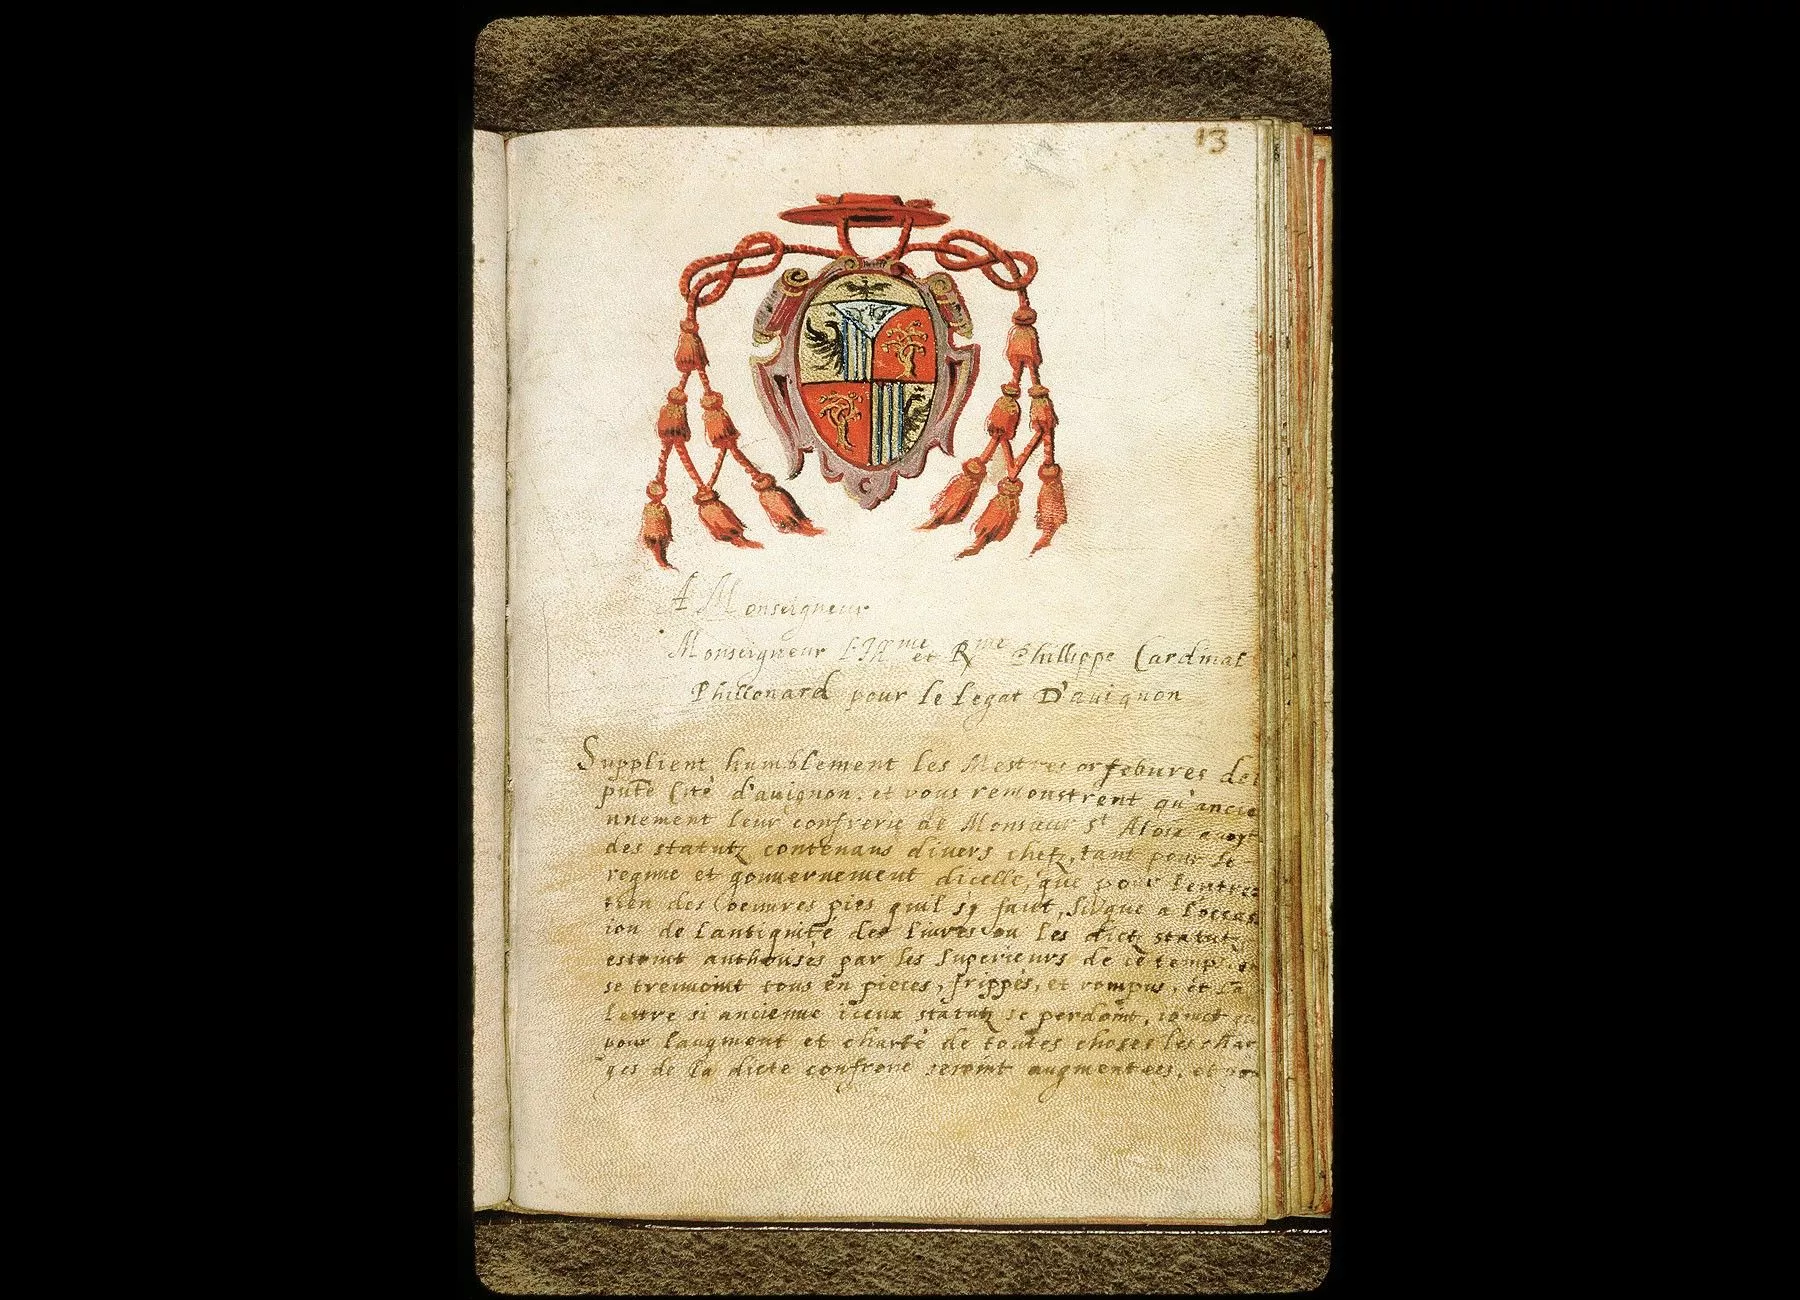 13
A Monseigneur
Monseigneur L'Ill.me et R.me Phillippe Cardinal
Phillonard pour le legat D'auignon
Supplient humblement les Mestres orfebures de
pute Cité d'auignon. et vous remonstrent qu'ancie
nnement leur confrerie de Monsieur St Aloix auoyt
des statutz contenans divers chefz, tant pour le
regime et gouuernement dicelle, que pour l'entre=
tien des Coeuures pies quil sy faut,
ion de l'antiquité des liures ou les dictz statutz
estoint authorisés par les Superieurs de ce temps
se treuuoint tous en pieces, frippés, et rompus, et La
Lettre si ancienne iceux statutz se perdoint, ioinct
pour l'augment et charté de toutes choses les char
ges de la dicte confrerie seroint augmentees, et